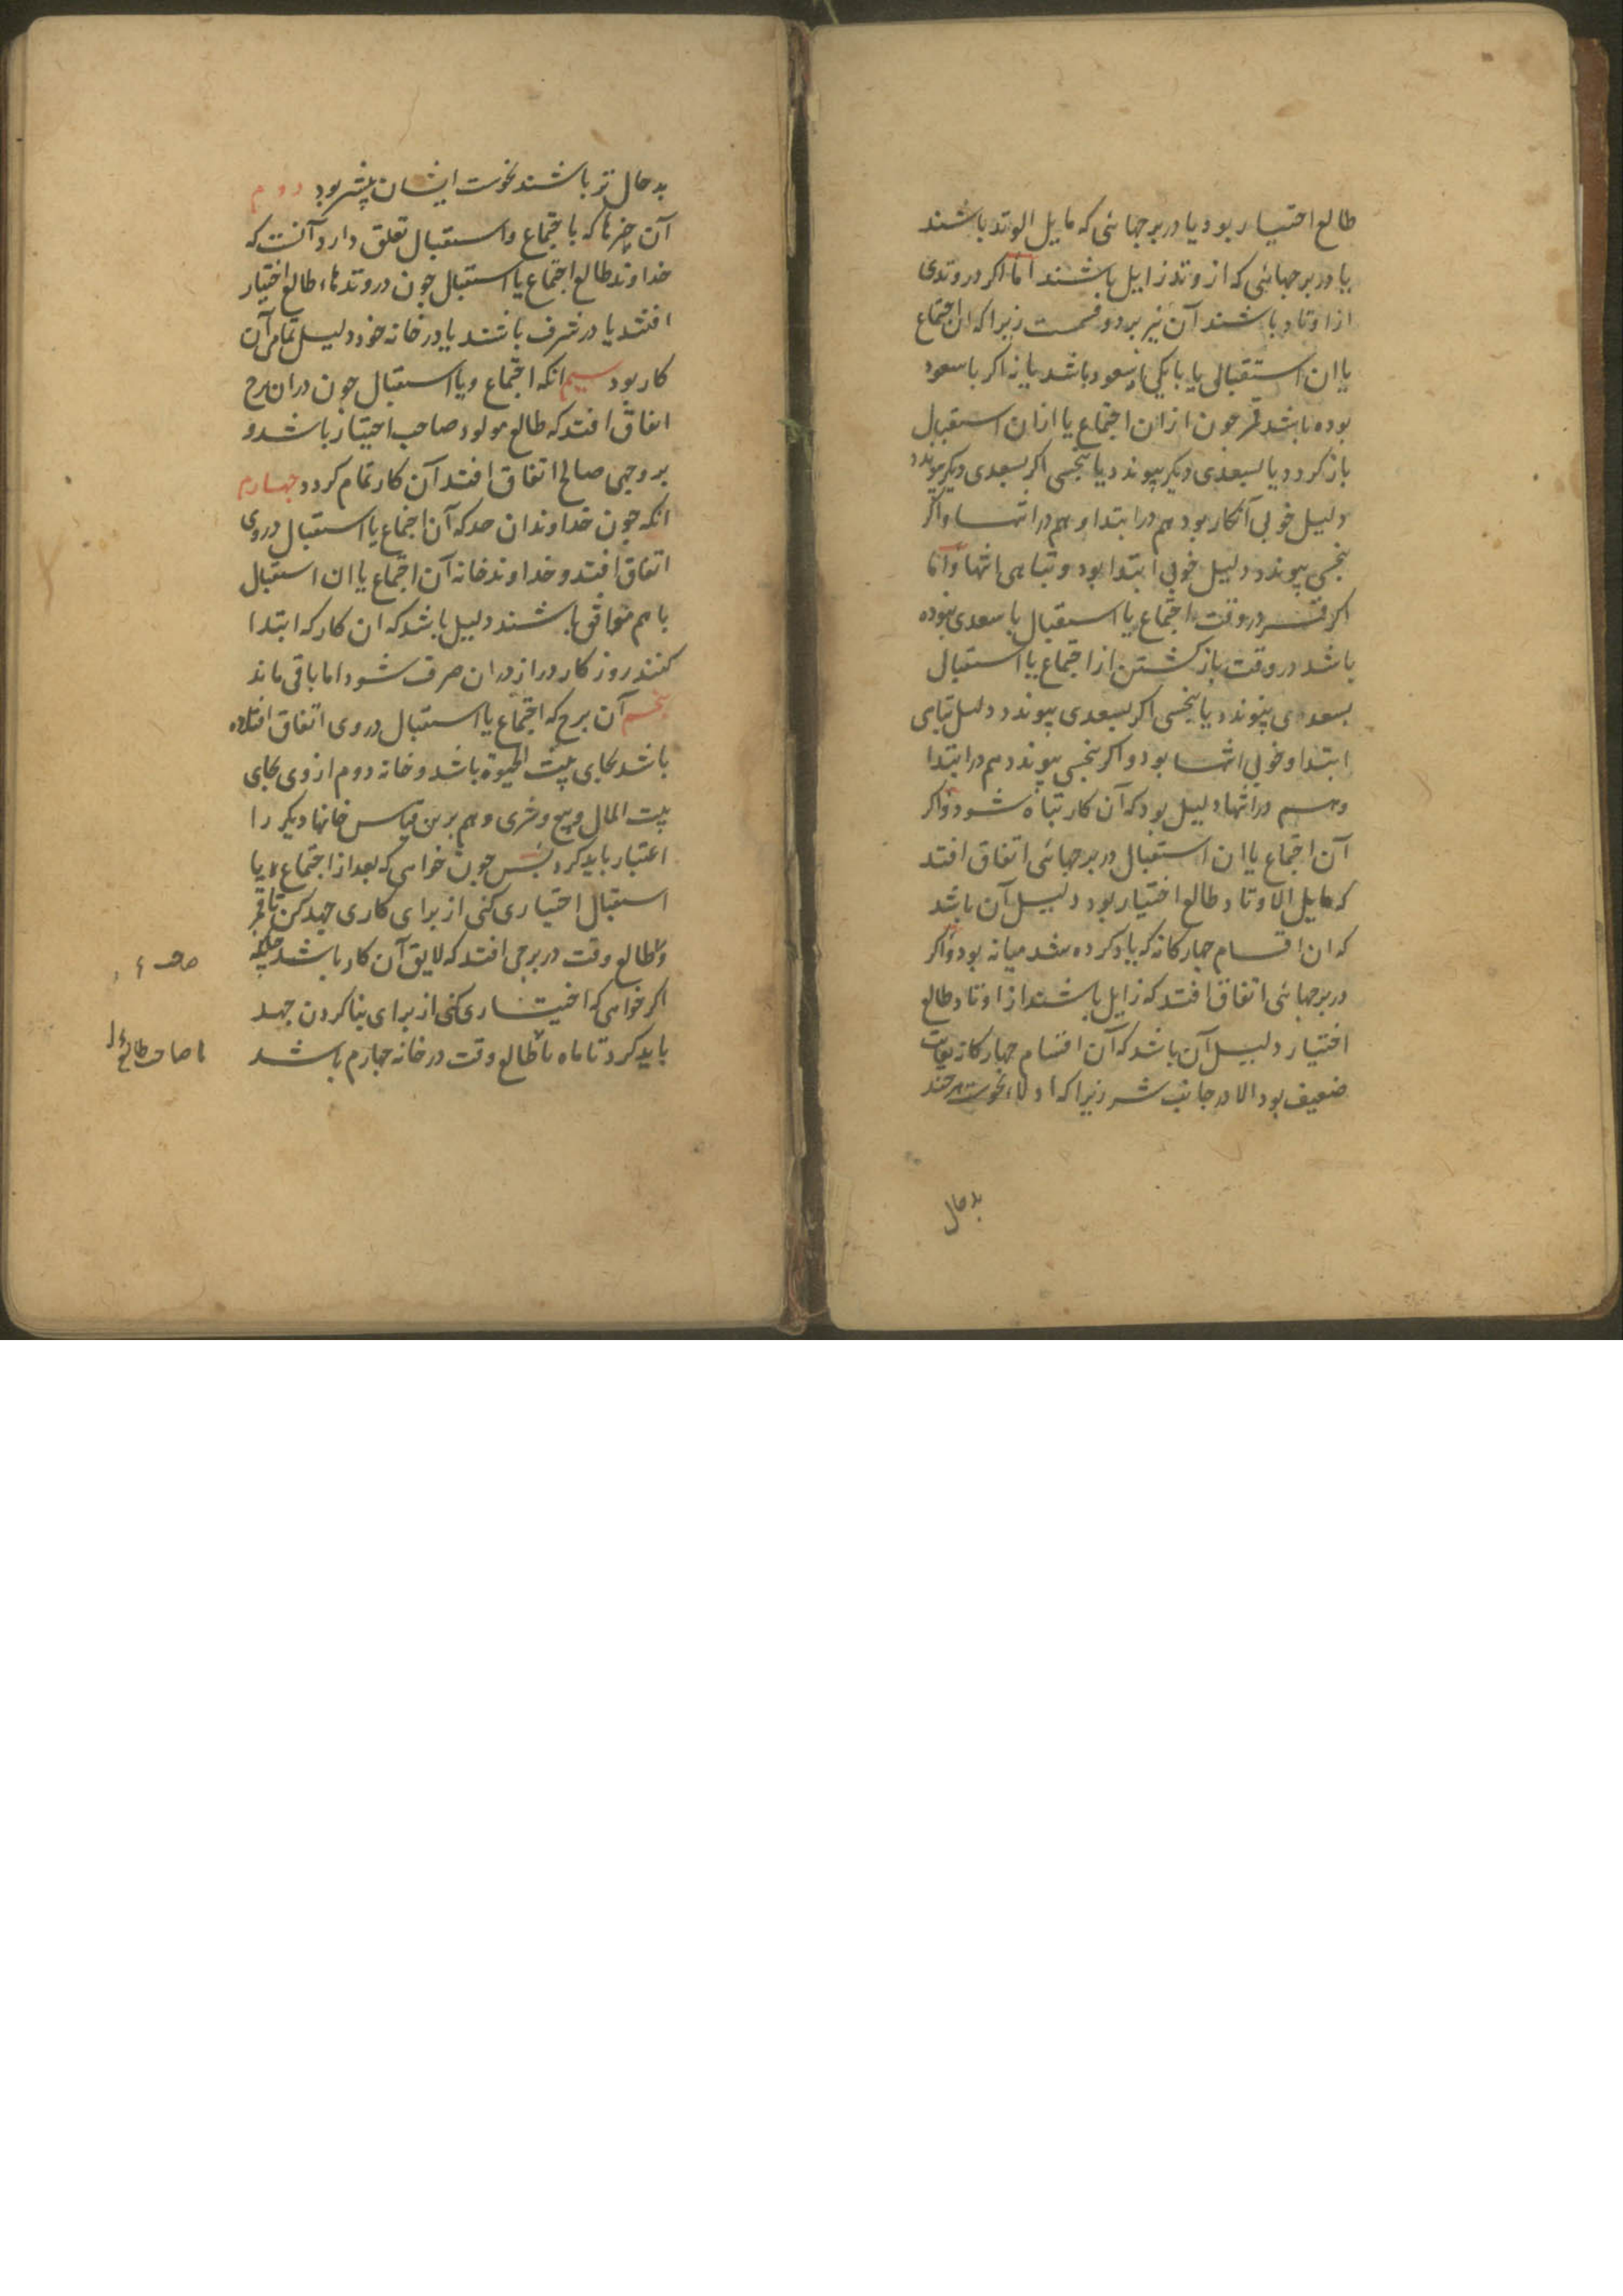 طالع اختیار بود یا در برجهائی که مایل الوتد باشند
یا در برجهائی که از وتد زایل باشند اما اکر در وتدی
از اوتاد باشند آن نیز بر دو قسمت زیرا که ان اجتماع
یا ان استقبالی یا با یکی از سعود باشد یا نه اکر با سعود
بوده باشد قمر جون از ان اجتماع یا از ان استقبال
باز کردد یا بسعدی دیکر پیوندد یا بنحسی اکر بسعدی دیکر پیوندد
دلیل خوبی آنکار بود هم در ابتدا و هم در انتها و اکر
بنحسی پیوندد دلیل خوبی ابتدا بود و تباهی انتها و اما
اکر قمر در وقت اجتماع یا استقبال با سعدی نبوده
باشد در وقت باز کشتن از اجتماع یا استقبال
بسعدی پیوندد یا بنحسی اکر بسعدی پیوندد دلیل تباهی
ابتدا و خوبی انتها بود و اکر بنحسی پیوندد هم در ابتدا
و هم در انتها دلیل بود که آن کار تباه شود و اکر
آن اجتماع یا ان استقبال در برجهائی اتفاق افتد
که مایل الاوتاد طالع اختیار بود دلیل آن باشد
که ان اقسام جهارکانه که یاد کرده شد میانه بود و اکر
در برجهائی اتفاق افتد که زایل باشند از اوتاد طالع
اختیار دلیل آن باشد که آن اقسام جهارکانه بغایت
ضعیف بود الا در جانب شر زیرا که ادلاء نحوست هر جند
بد حال
بد حال تر باشند نحوست ایشان بیشتر بود دوم
آن چیزها که باجتماع و استقبال تعلق دارد آنست که
خداوند طالع اجتماع یا استقبال جون در وتدهاء طالع اختیار
افتند یا در شرف باشند یا در خانه خود دلیل تمامی آن
کار بود سیم انکه اجتماع و یا استقبال جون در ان برج
اتفاق افتد که طالع مولود صاحب اختیار باشد و
بر وجهی صالح اتفاق افتد آن کار تمام کردد جهارم
انکه جون خداوندان حد که آن اجتماع یا استقبال در وی
اتفاق افتد و خداوند خانه آن اجتماع یا ان استقبال
با هم متوافق باشند دلیل باشد که ان کار که ابتدا
کنند روزکار دراز در ان صرف شود اما باقی ماند
پنجم آن برج که اجتماع یا استقبال در وی اتفاق افتاده
باشد بجای بیت الحیوة باشد و خانه دوم از وی بجای
بیت المال و بیع و شری و هم برین قیاس خانها دیکر را
اعتبار باید کرد پس جون خواهی که بعد از اجتماع و یا
استقبال اختیاری کنی از برای کاری جهد کن تا قمر
و طالع وقت در برجی افتد که لایق آن کار باشد چنانکه
اکر خواهی که اختیاری کنی از برای بنا کردن جهد
باید کرد تا ماه با طالع وقت در خانه جهارم باشد
یا صاحب طالع